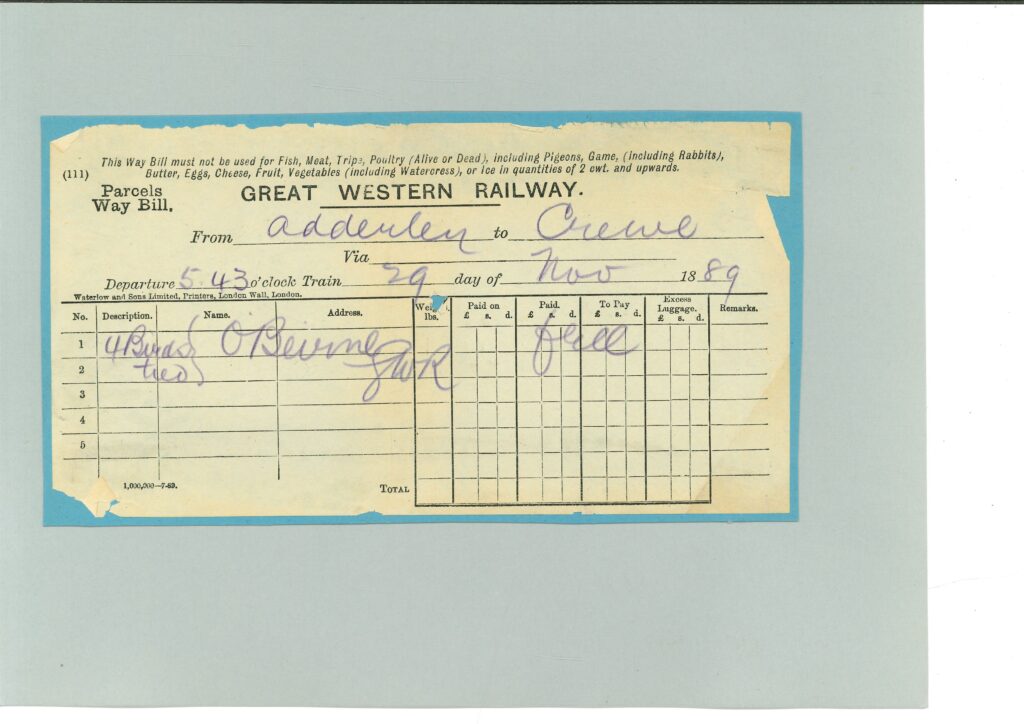 This Way Bill must not be used for Fish, Meat, Tripe, Poultry (Alive or Dead), including Pigeons, Game, (including Rabbits),
(111) Butter, Eggs, Cheese, Fruit, Vegetables (including Watercress), or Ice in quantities of 2 cwt. and upwards.
Parcels Way Bill. GREAT WESTERN RAILWAY.
From Adderley to Crewe
Via
Departure 5.43 o'clock Train 29 day of Nov 1889
Waterlow and Sons Limited, Printers, London Wall, London.
No. Description. Name. Address. lbs. Paid on £ s. d. Paid. £ s. d. To Pay £ s. d. Excess Luggage. £ s. d. Remarks.
1 4 Birds O'Beirne
2 tied GWR
3
4
5
1,000,000—7-89.
TOTAL